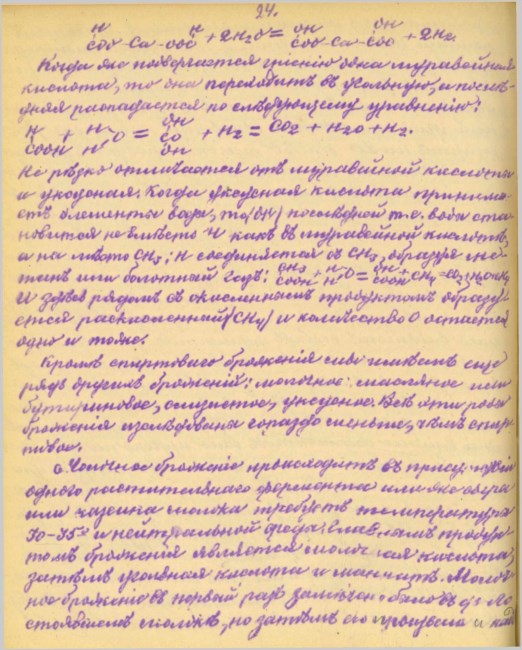 24.
H H OH OH
COO-Ca-OOC + 2H2O = COO-Ca-COO + 2H2.
Когда же подвергается гніенію одна муравейная
кислота, то она переходитъ въ угольную, а послѣд-
няя распадается по слѣдующему уравненію:
H H OH
COOH + H O = CO + H2 = CO2 + H2O + H2.
OH
Не рѣзко отличается отъ муравейной кислоты
и уксусная. Когда уксусная кислота принима-
етъ элементы воды, то (OH) послѣдней т.е. воды ста-
новится не вмѣсто H какъ въ муравейной кислотѣ,
а на мѣсто CH3; H соединяется съ CH3, образуя ме-
танъ или болотный газъ: CH3 COOH + H H O = OH COOH + CH4 = CO2 + H2O + CH4
И здѣсь рядомъ съ окисленнымъ продуктомъ образу-
ется раскисленный (CH4) и количество O остается
одно и тоже.
Кромѣ спиртоваго броженія мы имѣемъ еще
рядъ другихъ броженій: молочное, масляное или
бутириновое, слизистое, уксусное. Всѣ эти рода
броженія изслѣдованы гораздо меньше, чѣмъ спир-
товое.
Молочное броженіе происходитъ въ присутствіи
одного растительнаго фермента или же сыра
или казеина молока требуетъ температуры
30-35° и нейтральной среды. Главнымъ продук-
томъ броженія является молочная кислота,
затѣмъ угольная кислота и маннитъ. Молоч-
ное броженіе въ первый разъ замѣчено было въ
стоявшемъ молокѣ, но затѣмъ его произвели и